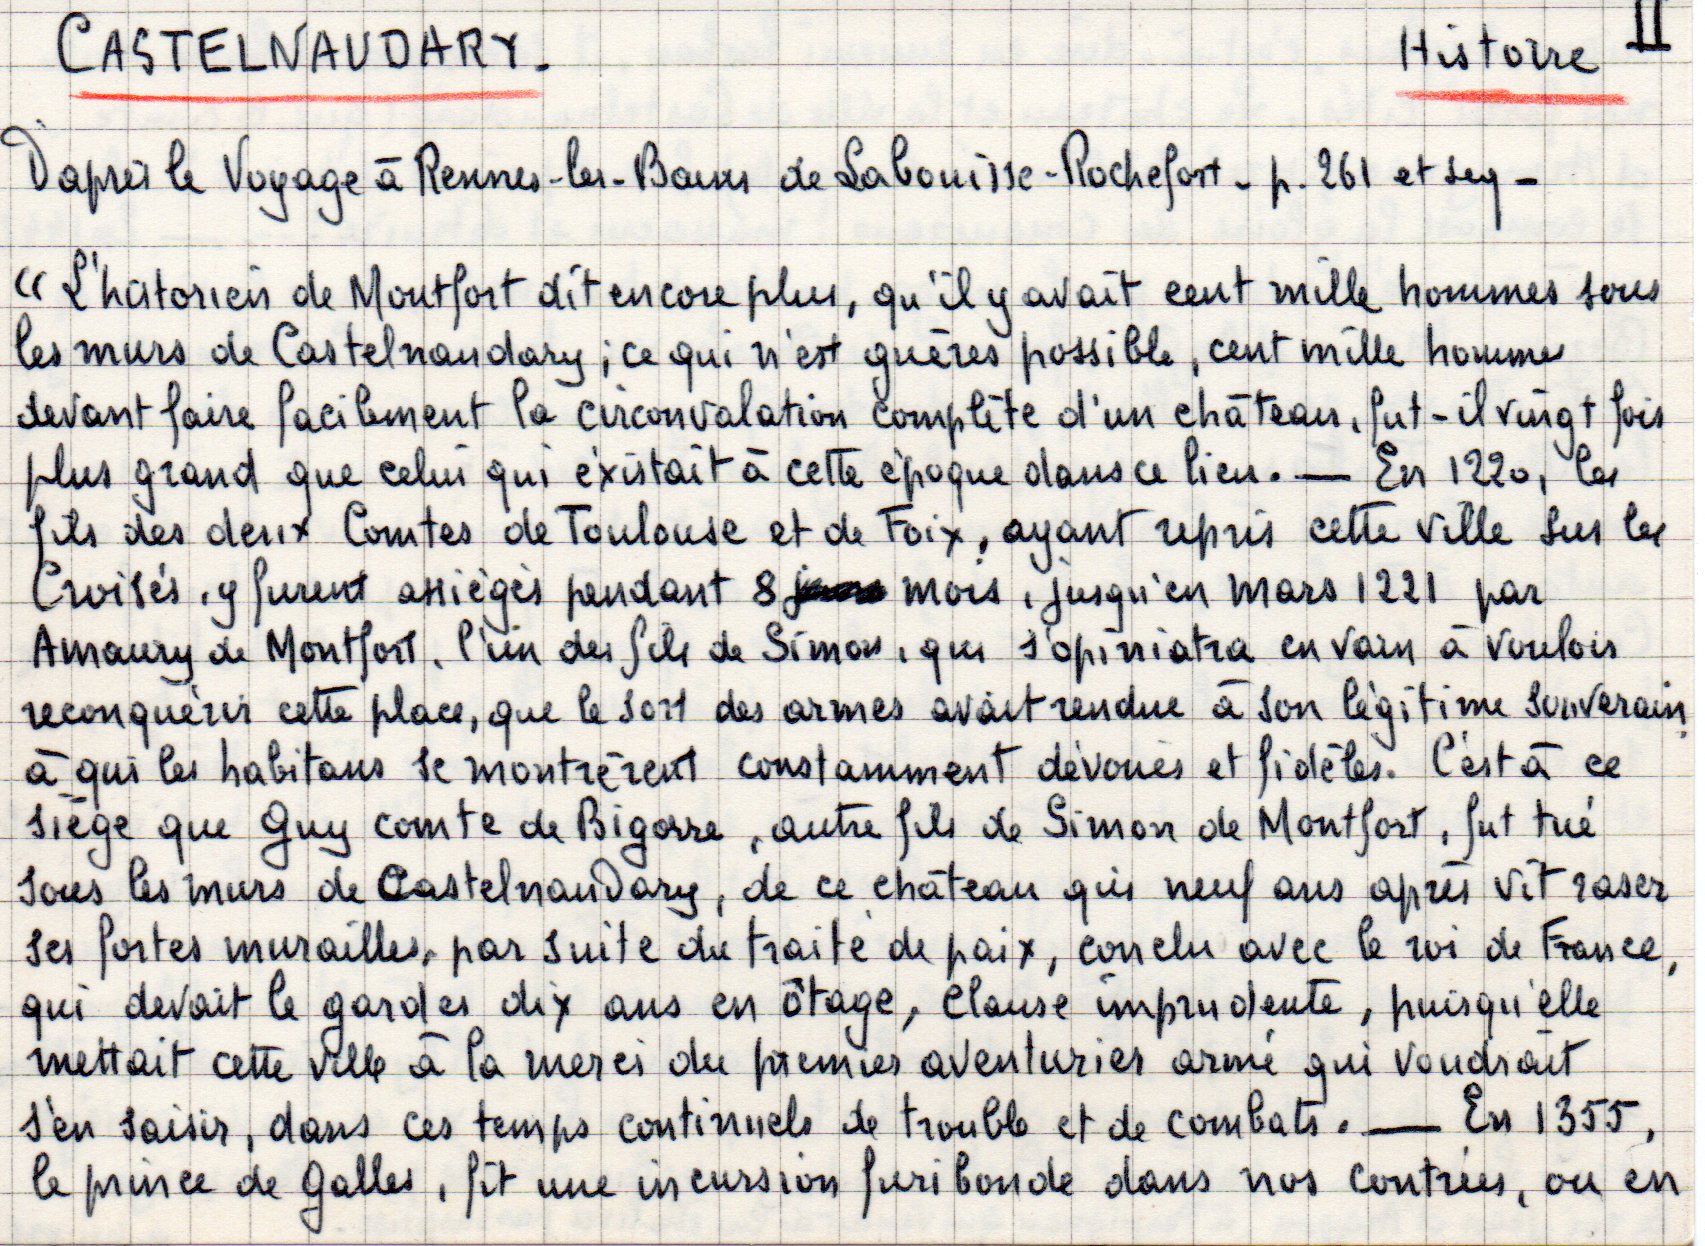 CASTELNAUDARY. Histoire II
D'après le Voyage à Rennes-les-Bains de Labouisse-Rochefort - p. 261 et seq -
"L'historien de Montfort dit encore plus, qu'il y avait cent mille hommes sous
les murs de Castelnaudary ; ce qui n'est guères possible, cent mille hommes
devant faire facilement la circonvalation complète d'un château, fut-il vingt fois
plus grand que celui qui éxistait à cette époque dans ce lieu. — En 1220, les
fils des deux Comtes de Toulouse et de Foix, ayant repris cette ville sur les
Croisés, y furent assiégés pendant 8 mois, jusqu'en mars 1221 par
Amaury de Montfort, l'un des fils de Simon, qui s'opiniatra en vain à vouloir
reconquérir cette place, que le sort des armes avait rendue à son légitime souverain,
à qui les habitans se montrèrent constamment dévoués et fidèles. C'est à ce
siège que Guy comte de Bigorre, autre fils de Simon de Montfort, fut tué
sous les murs de Castelnaudary, de ce château qui neuf ans après vit raser
ses fortes murailles, par suite du traité de paix, conclu avec le roi de France,
qui devait le garder dix ans en ôtage, clause imprudente, puisqu'elle
mettait cette ville à la merci du premier aventurier armé qui voudrait
s'en saisir, dans ces temps continuels de trouble et de combats. — En 1355,
le prince de Galles, fit une incursion furibonde dans nos contrées, ou en